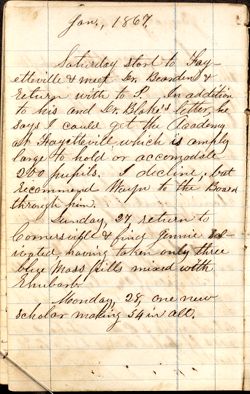 Jan, 1867.
Saturday start to Fay-
etteville & meet Dr. Bearden &
return with to P. In addition
to his and Dr. Blake's letter, he
says I could get the Academy
at Fayetteville which is amply
large to hold or accomodate
200 pupils. I decline, but
recommend to the Board
through him.
Sunday, 27, return to
Cornersville & find Jennie
having taken only three
blue Mass pills mixed with
Rhubarb.
Monday, 28, one new
scholar making 54 in all.